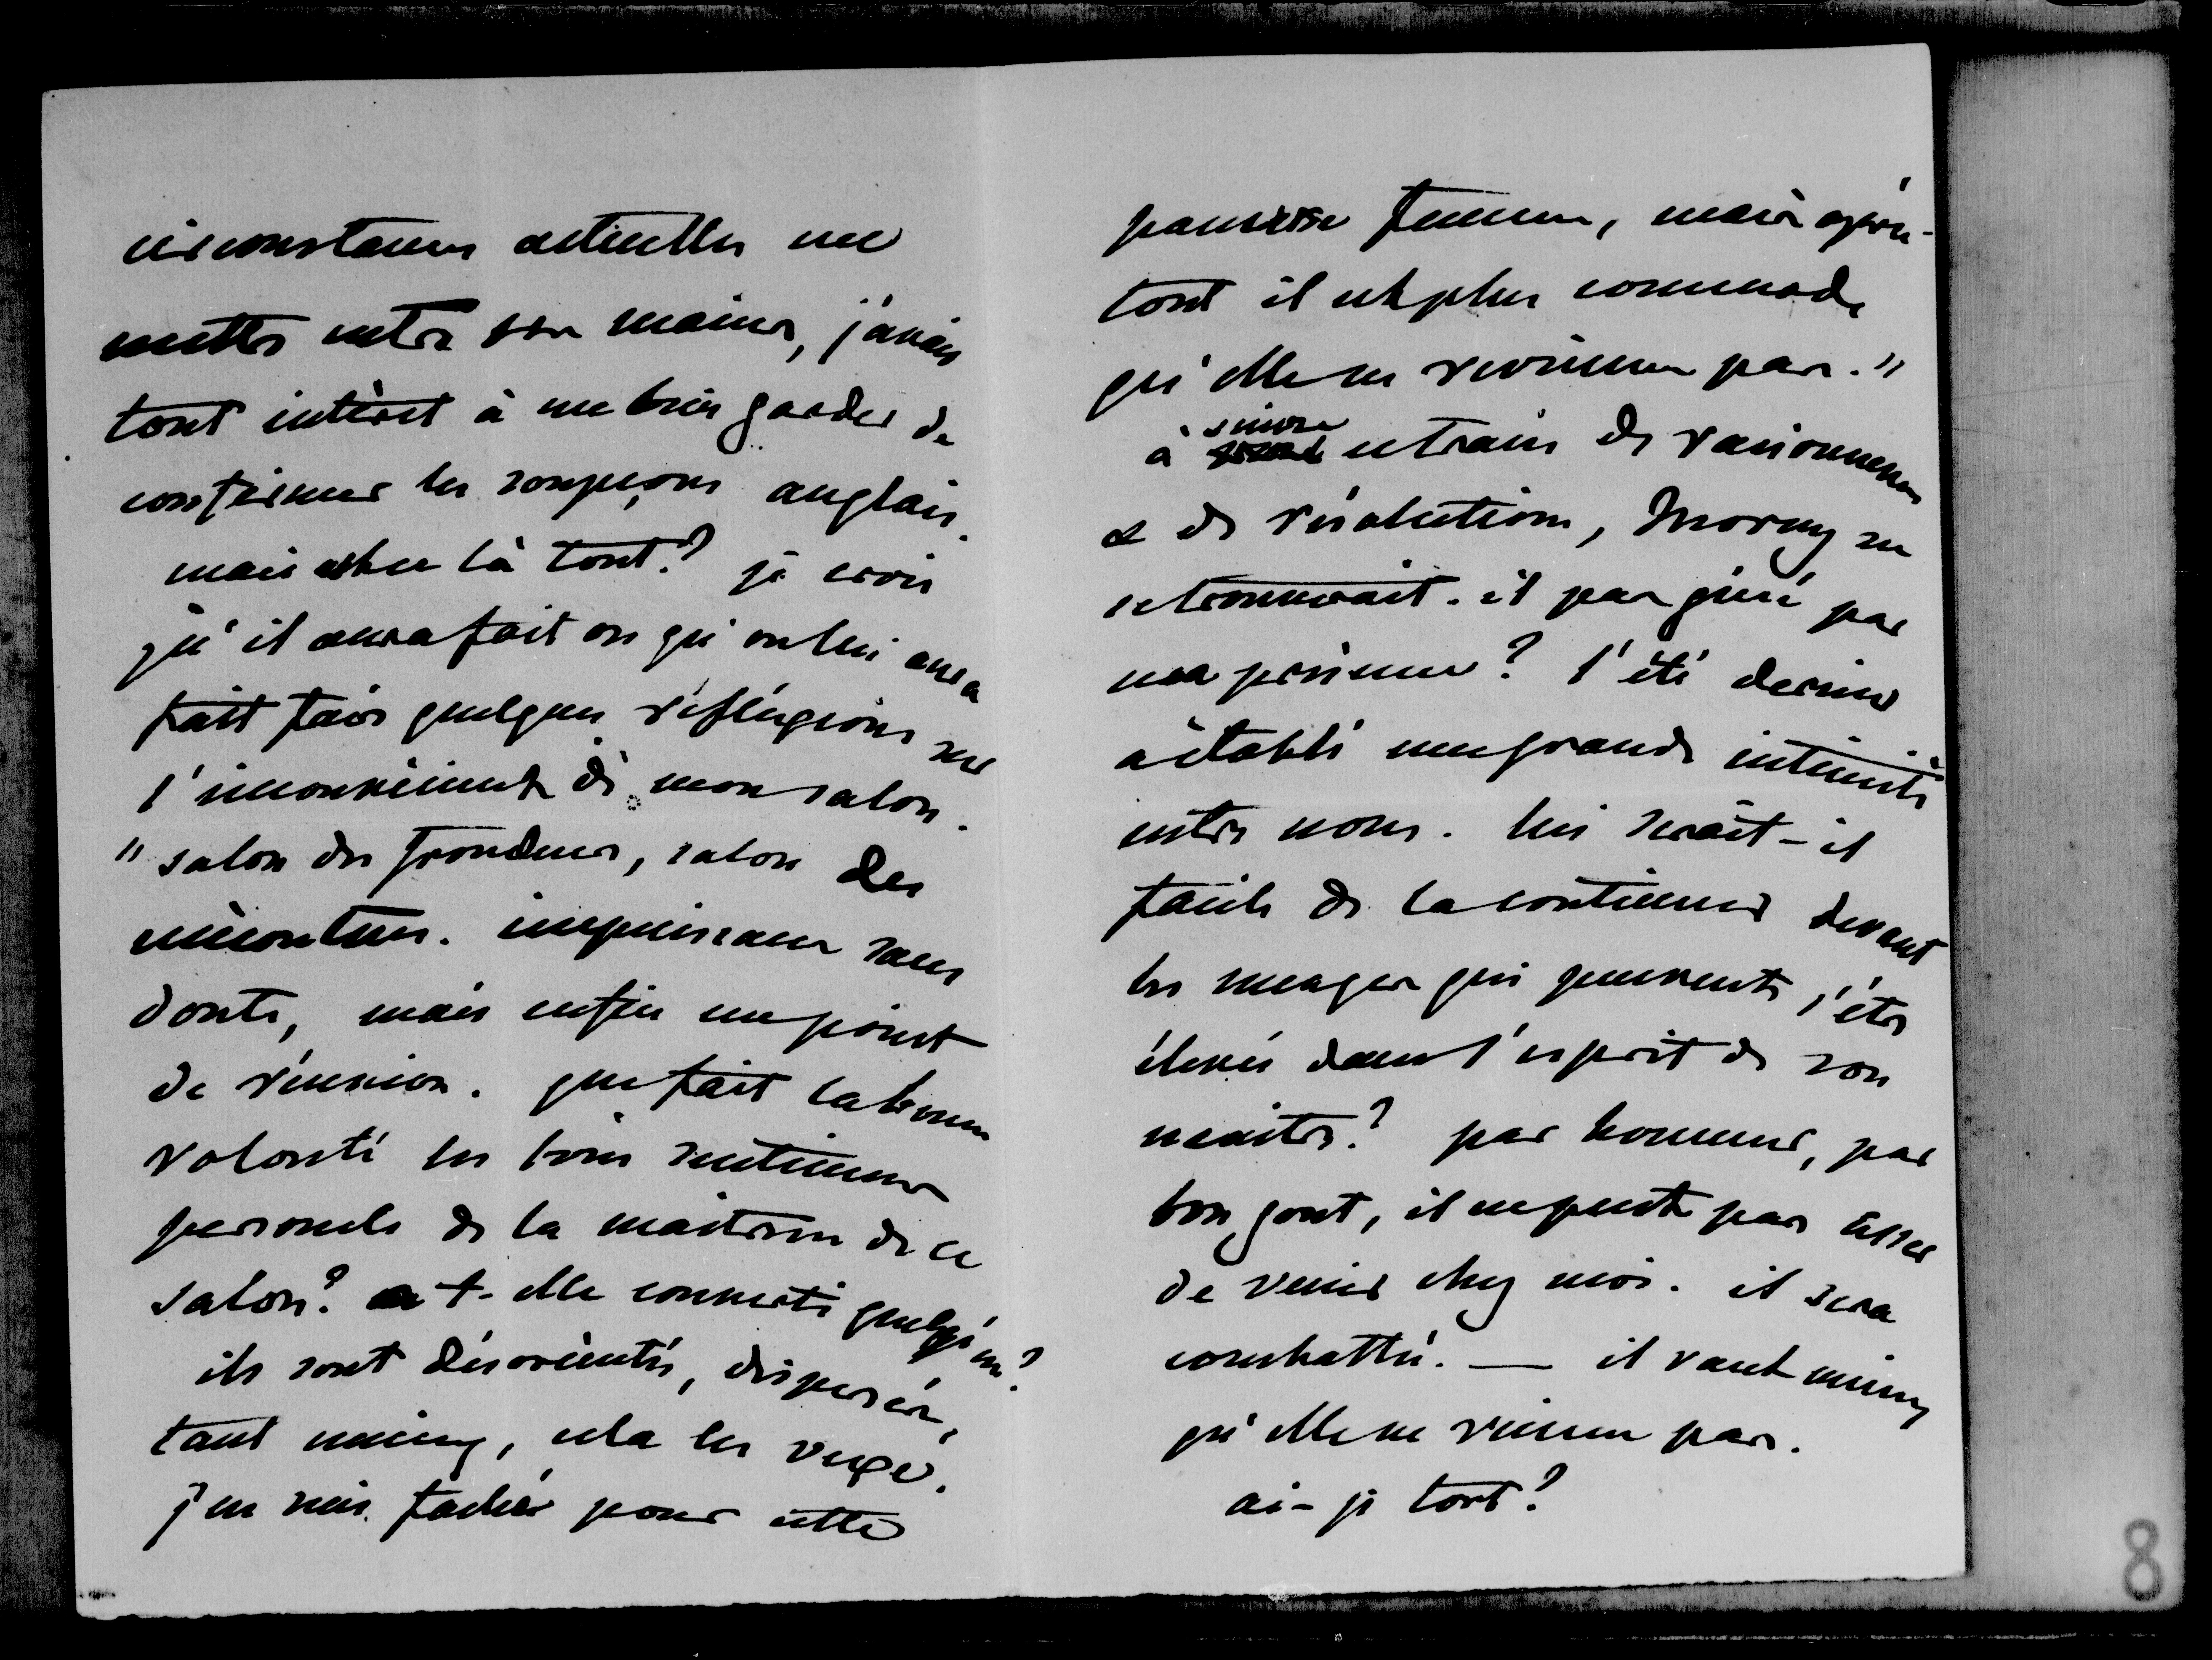 circonstances actuelles me
mettre entre ses mains, j'avais
tout intéret à me bien garder de
confirmer les soupçons anglais.
mais est-ce là tout? je crois
qu'il aura fait ou qu'on lui aura
fait faire quelques réflexions sur
l'inconvénient de mon salon.
"salon des frondeurs, salon des
mécontens. impuissans sans
doute, mais enfin un point
de réunion. que fait la bonne
volonté les bons sentimens
personels de la maitresse de ce
salon? a t-elle converti quelqu'un?
ils sont désorientés, dispersés,
tant mieux, cela les vexe.
j'en suis fachée pour cette
pauvre femme, mais après-
tout il est plus commode
qu'elle ne revienne pas."
à suivre ce train de raisonnemens
& de résolutions, Morny ne
se trouverait-il pas gêné par
ma présence? l'été dernier
a établi une grande intimité
entre nous. lui serait-il
facile de la continuer devant
les nuages qui peuvent s'être
élevés dans l'esprit de son
maitre? par honneur, par
bon gout, il ne peut pas cesser
de venir chez moi. il sera
combattu. — il vaut mieux
qu'elle ne vienne pas.
ai-je tort?
8